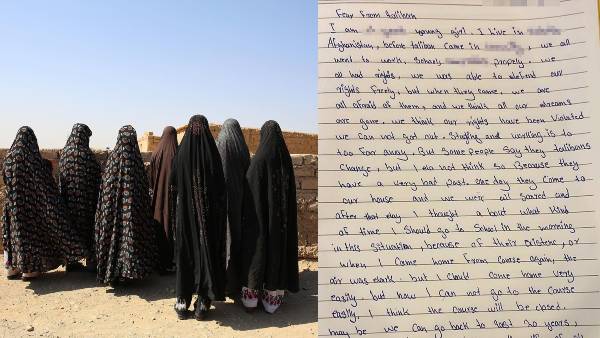 Fear From taliban
I am young girl. I live in
Afghanistan, before taliban came in we all
went to work, Schools properly, we
all had rights, we was able to defend our
rights freely, but when they came, we are
all afraid of them, and we think all our dreams
are gone, we think our rights have been violated
we can not got out. Studying and working is to
too far away. But some people Say they talibans
Change, but I do not think so Because they
have a very bat past. one day they come to
our house and we were all scared and
after that day I thought a bout what kind
of time I should go to School In the morning
in this situation, because of their existence, or
when I came home from Course again, the
air was dark. but I Could come home very
easily. but now I can not go to the Course
easily, I think the course will be closed.
may be we can go back to last 20 years,